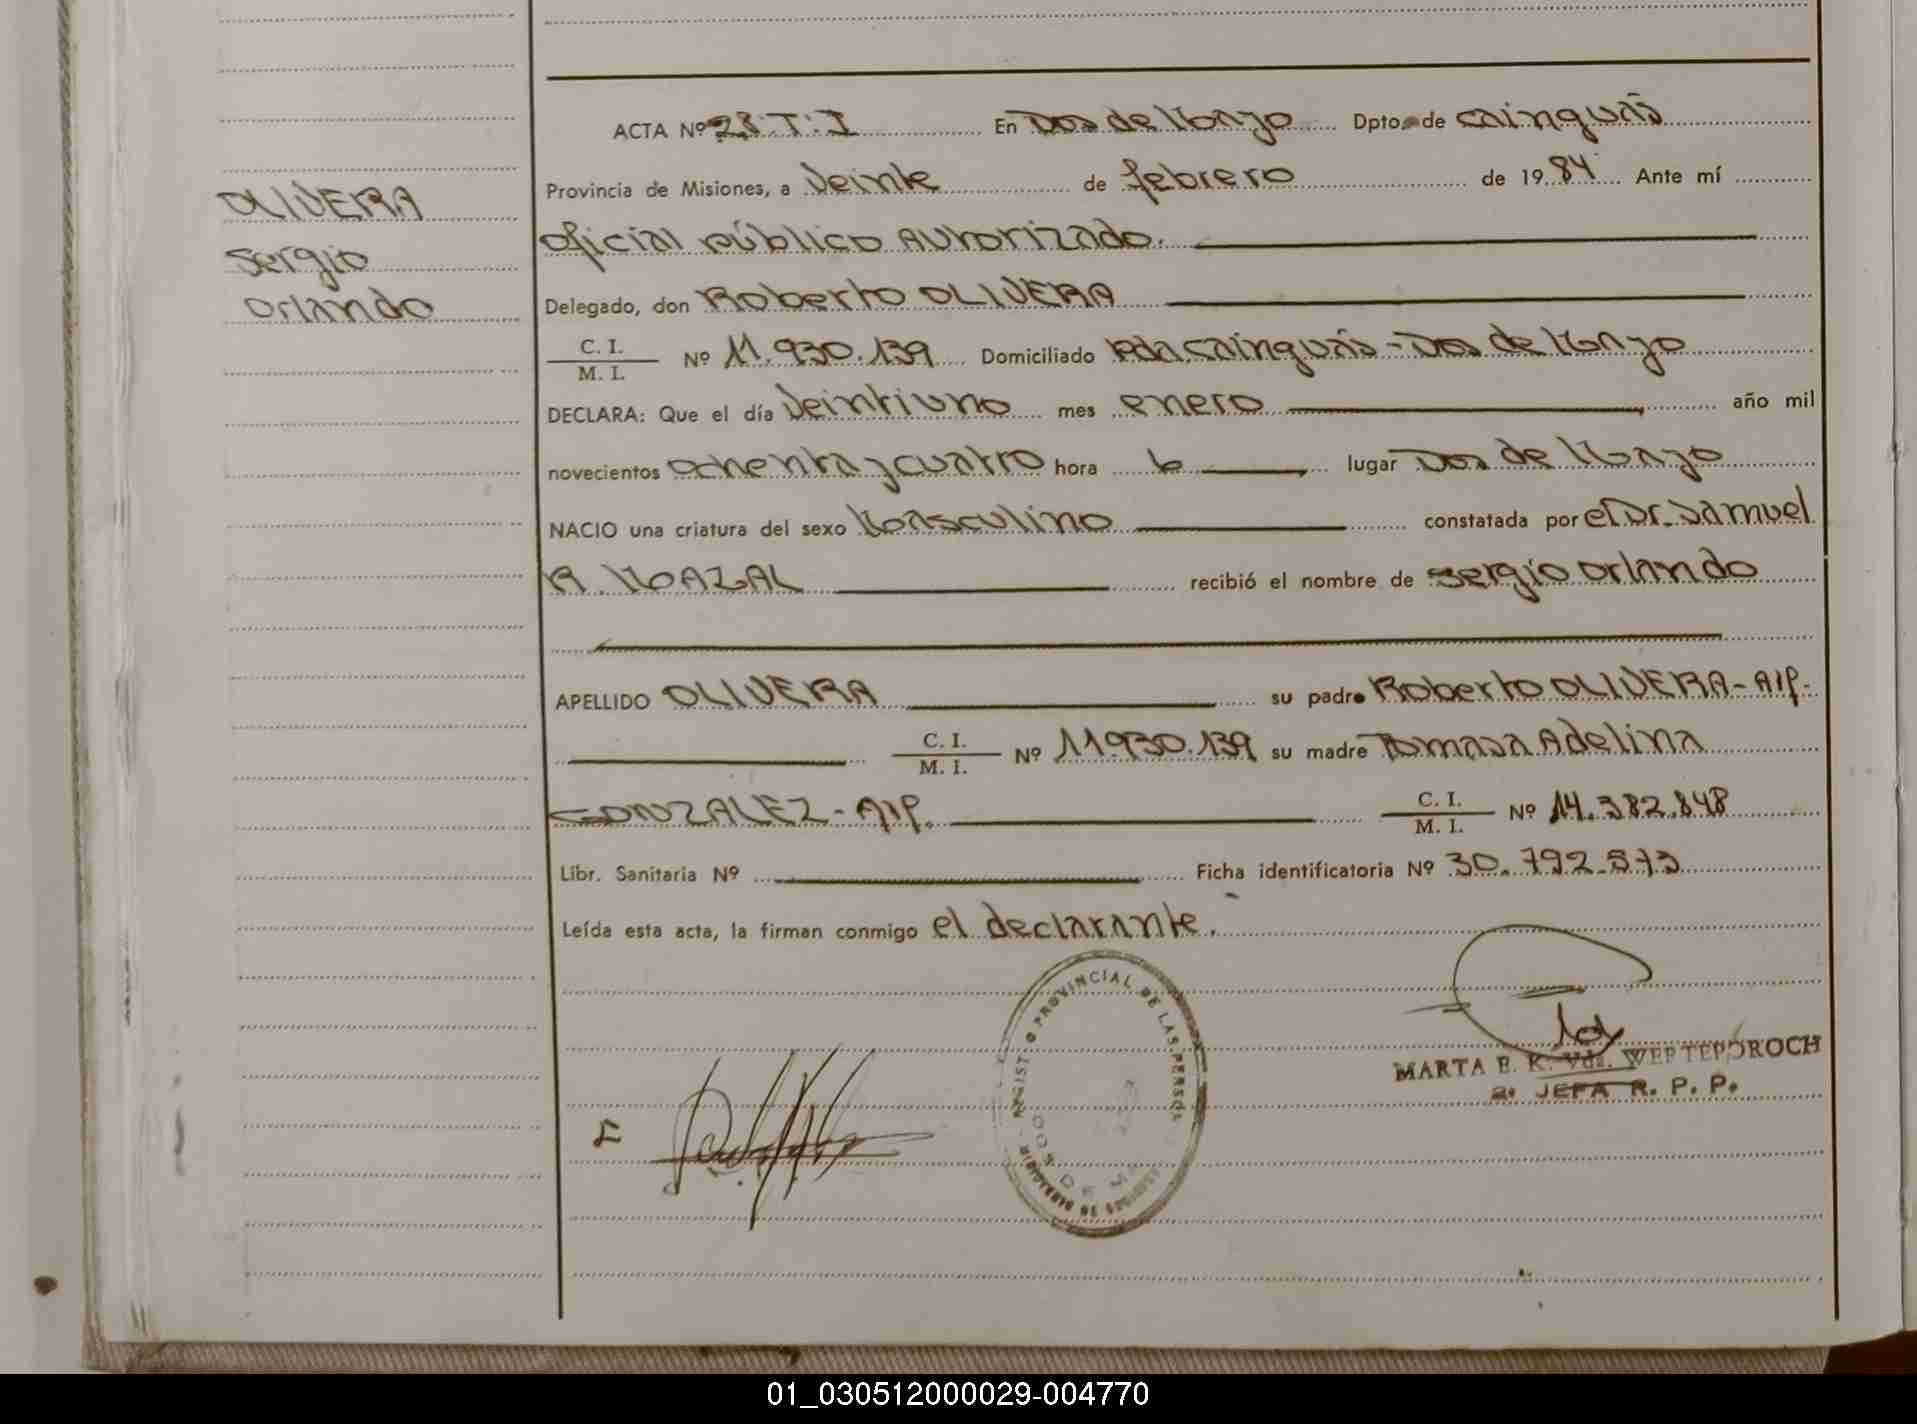 OLIVERA
Sergio
Orlando
ACTA Nº 28·T·I En Dos de Mayo Dpto. de Cainguás
Provincia de Misiones, a Veinte de febrero de 1984 Ante mí
oficial público Autorizado.
Delegado, don Roberto OLIVERA
C. I.
M. I.
Nº 11.930.139 Domiciliado Pda Cainguás - Dos de Mayo
DECLARA: Que el día Veintiuno mes enero año mil
novecientos ochenta y cuatro hora 6 lugar Dos de Mayo
NACIO una criatura del sexo Masculino constatada por el Dr. Samuel
R. MAZAL recibió el nombre de Sergio Orlando
APELLIDO OLIVERA su padre Roberto OLIVERA - Arg.
C. I.
M. I.
Nº 11930.139 su madre Tomasa Adelina
GONZALEZ - Arg.
C. I.
M. I.
Nº 14.382.848
Libr. Sanitaria Nº Ficha identificatoria Nº 30.792.573
Leída esta acta, la firman conmigo el declarante.
PROVINCIAL DE LAS PERSO
DOS DE
MARTA E. K. Vda. WERTEPOROCH
2. JEFA R. P. P.
01_030512000029-004770